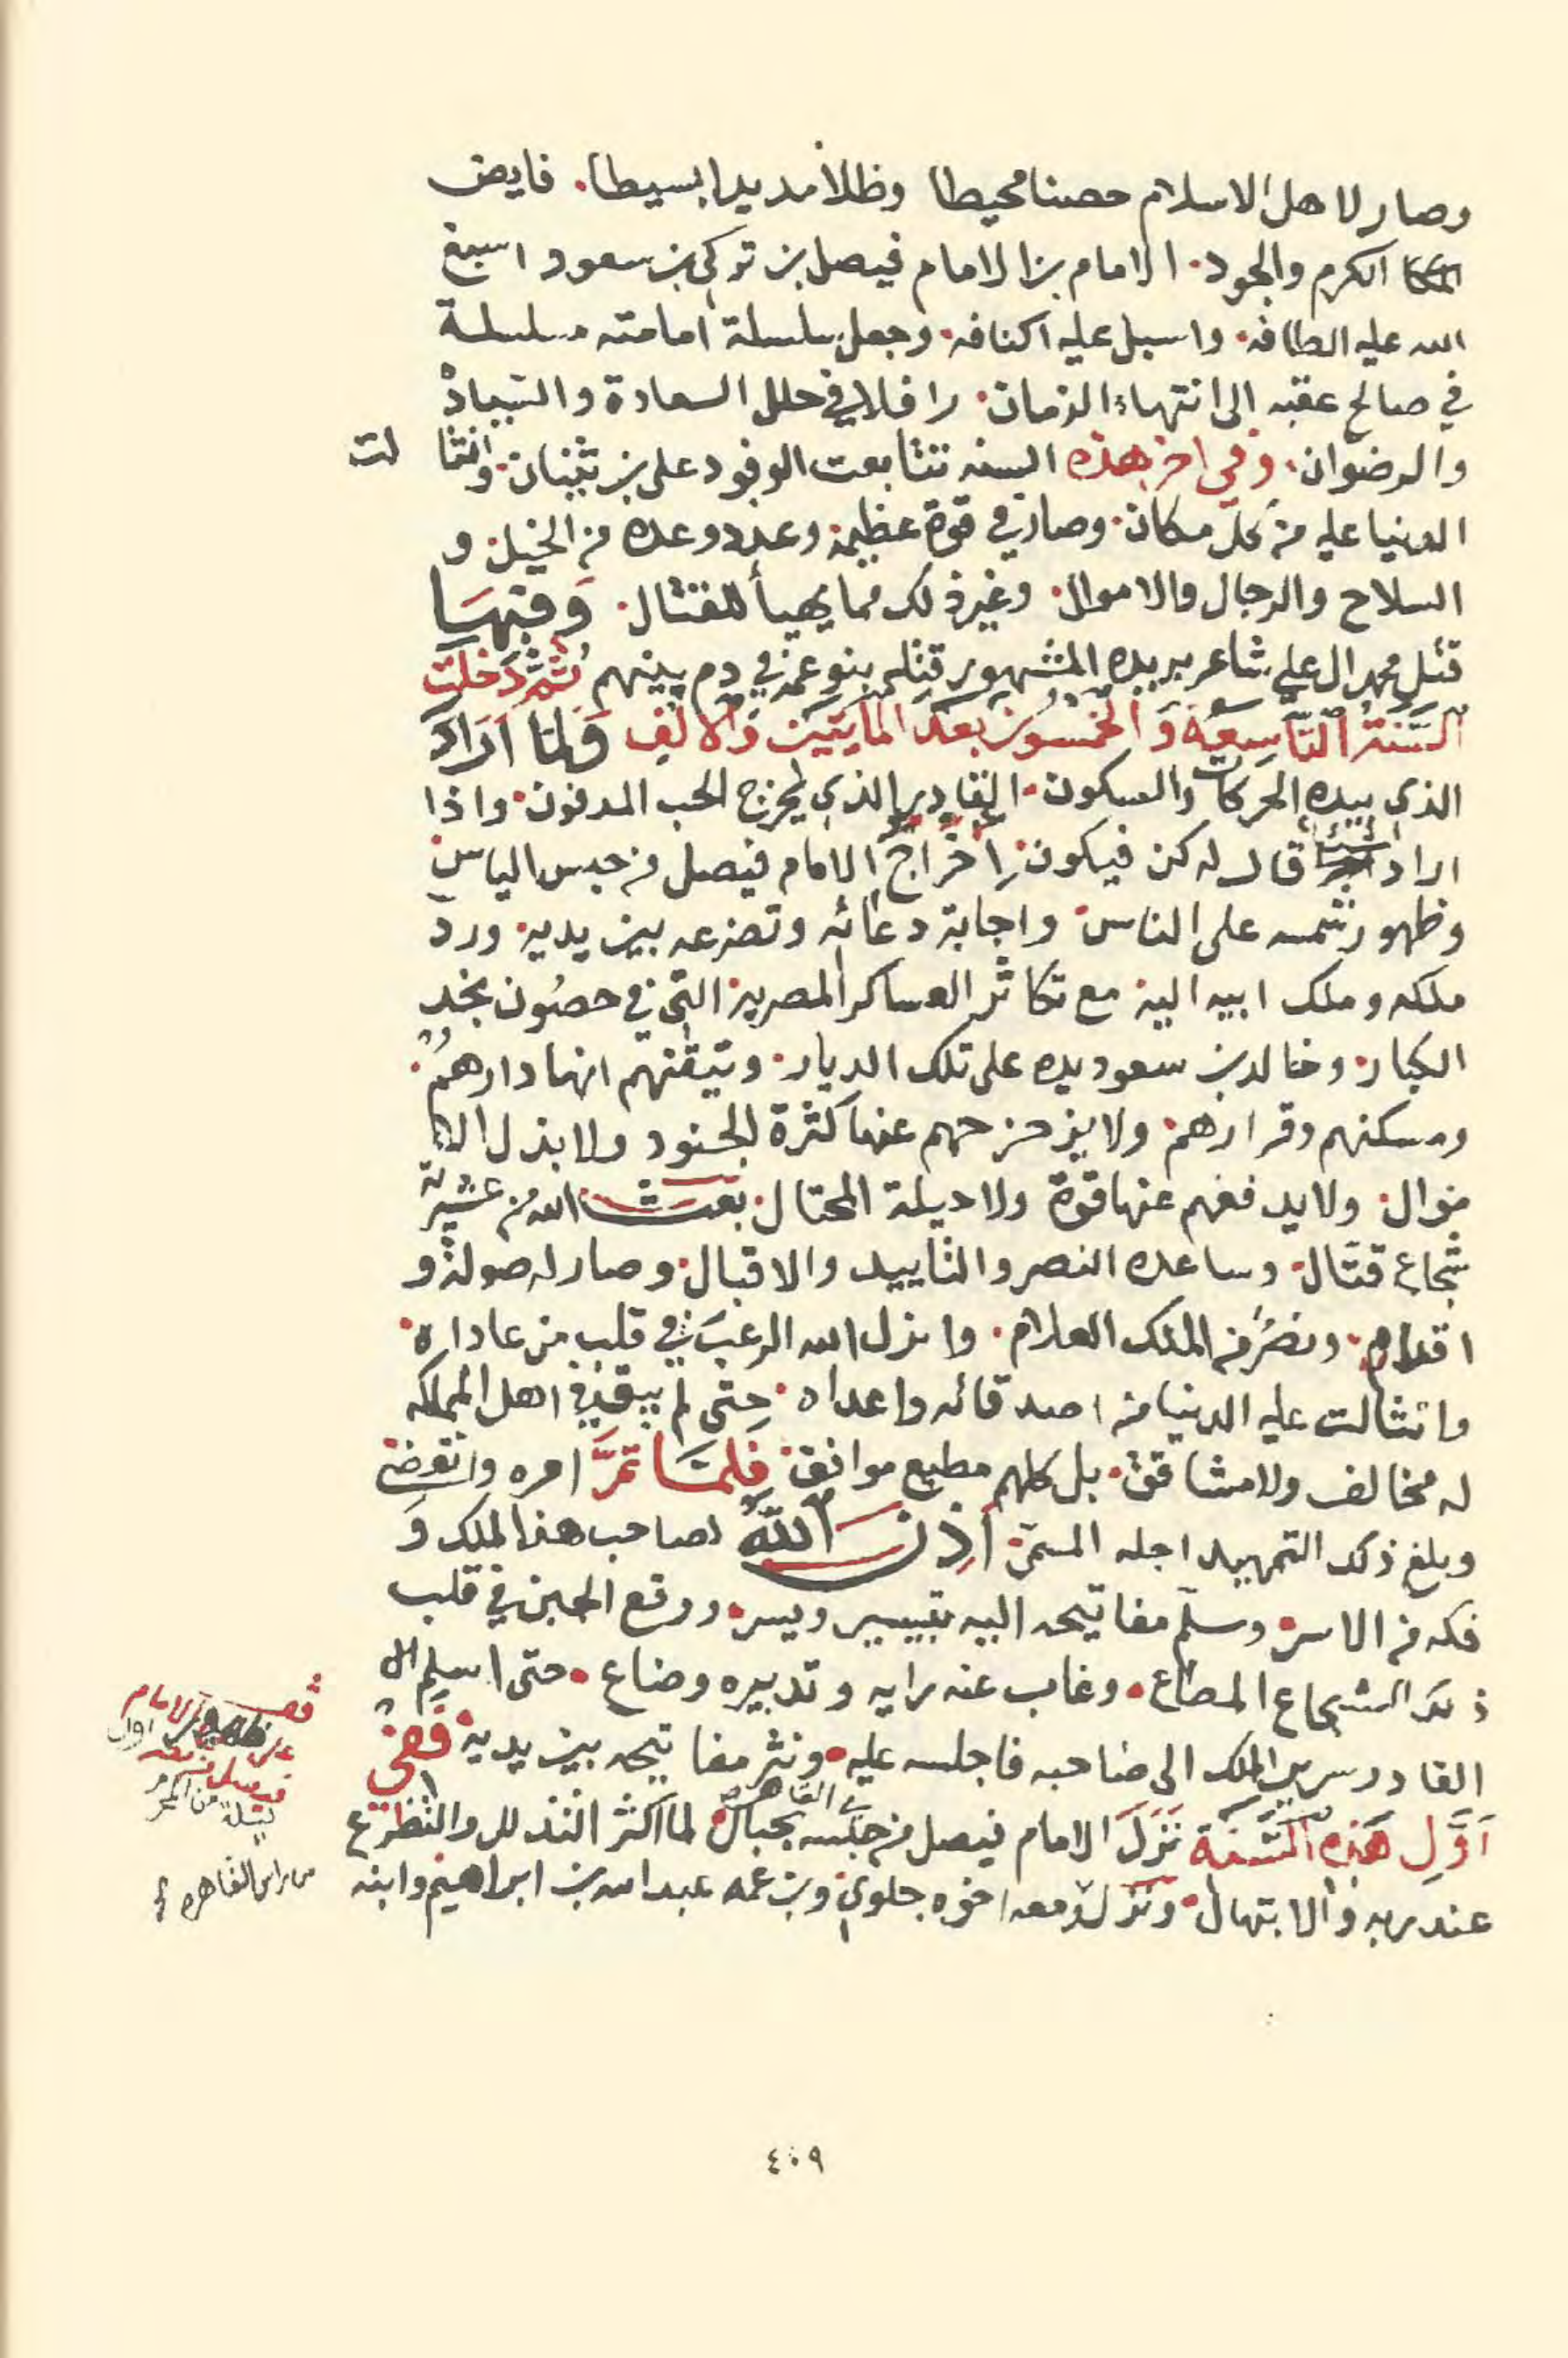 وصار لاهل الاسلام حصنا محيطا وظلا مديدا بسيطا. فايض
الكرم والجود. الامام بن الامام فيصل بن تركي بن سعود اسبغ
الله عليه الطافه. واسبل عليه اكنافه. وجعل سلسلة امامته مسلسلة
في صالح عقبه الى انتهاء الزمان. رافلا في حلل السعادة والسيادة
والرضوان. وفي اخر هذه السنه تتابعت الوفود على بن ثنيان. وانثالت
الدنيا عليه من كل مكان. وصار في قوة عظيمة وعدد وعده من الخيل. و
السلاح والرجال والاموال. وغير ذلك مما يهيأ للقتال. وَفيهَا
قتل محمد ال علي شاعر بريده المشهور قتله بنو عمه في دم بينهم ثُمَّ دَخلت
السَّنَةُ التَّاسِعَة وَالخمْسُون بعدَ المأيتَين وَالالف فَلمّا اَرَادَ
الذي بيده الحركات والسكون. القادر الذي يخرج الحب المدفون. واذا
اراد شيئا قال له كن فيكون. اِخْرَاجَ الامام فيصل من حبس الياس
وظهور شمسه على الناس. واجابة دعائه وتضرعه بين يديه. ورد
ملكه وملك ابيه اليه. مع تكاثر العساكر المصرية. التي في حصُون نجد
الكبار. وخالد بن سعود يده على تلك الديار. وتيقنهم انها دارهمُ.
ومسكنهم وقرارهم. ولا يزحزحهم عنها كثرة الجنود ولا بذل الا
موال. ولا يدفعهم عنها قوة ولا حيلة المحتال. بَعَثَ الله من عشيرته
شجاع قتّال. وساعده النصر والتاييد والاقبال. وصار له صولة و
اقدام. ونصرُ من الملك العلام. وانزل الله الرعبَ في قلب من عاداه.
وانثالت عليه الدنيا من اصدقائه واعداه. حتى لم يبق في اهل المملكه
له مخالف ولا مشاقق. بل كلهم مطيع موافق. فَلمَّا تمَّ امره وانقضى
وبلغ ذلك التمهيد اجله المسمى. اَذِنَ اللّهُ لصاحب هذا الملك وَ
فكه من الاسر. وسلّم مفاتيحه اليه بتيسير ويسر. ووقع الجبن في قلب
ذلك الشجاع المطاع. وغاب عنه رايه وتدبيره وضاع. حتى اسلم الا
القادر سرير الملك الى صاحبه فاجلسه عليه. ونثر مفاتيحه بين يديه. فَفي
اَوَّلِ هَذِه السَّنَة نَزَلَ الامام فيصل من حبسه في القاهره بحبال. لما اكثر التذلل والتضرع
عند ربه والابتهال. ونزل معه اخوه جلوي. وبن عمه عبدالله بن ابراهيم وابنه
قصة ظهور الامام
فيصل
من مصر
٤٠٩